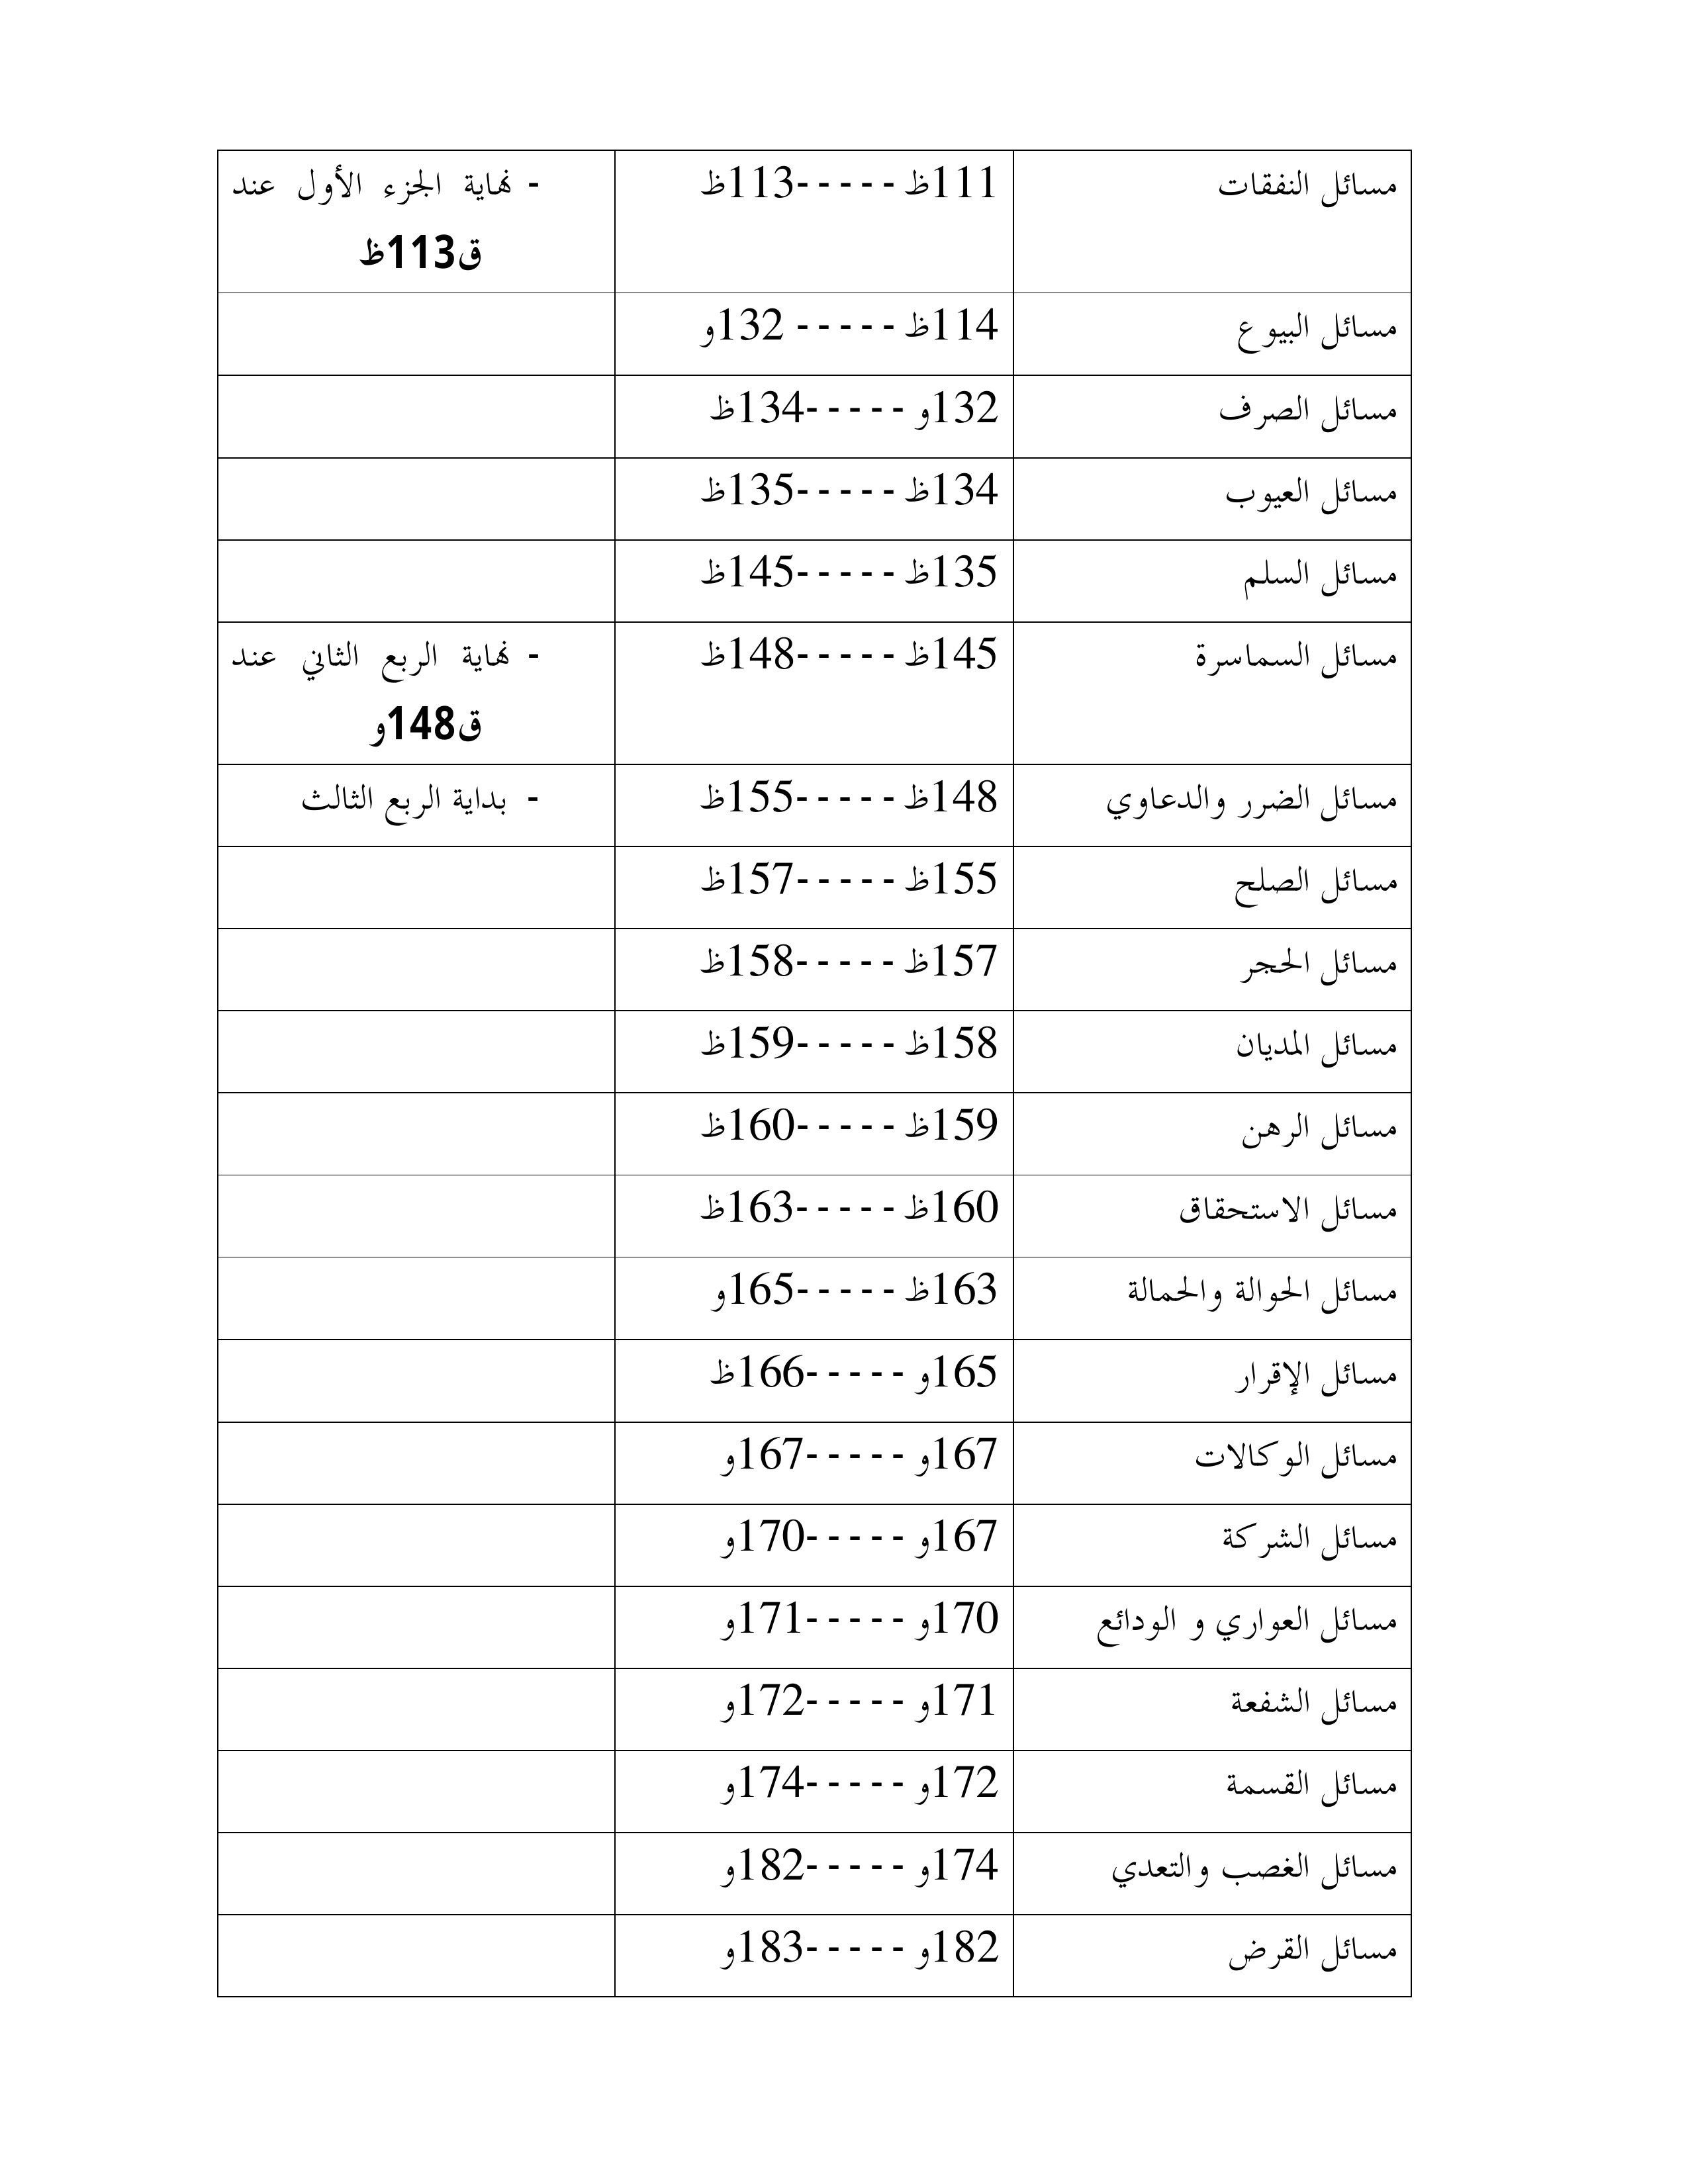 مسائل النفقات 111ظ -----113ظ - نهاية الجزء الأول عند
ق113ظ
مسائل البيوع 114ظ ----- 132و
مسائل الصرف 132و -----134ظ
مسائل العيوب 134ظ -----135ظ
مسائل السلم 135ظ -----145ظ
مسائل السماسرة 145ظ -----148ظ - نهاية الربع الثاني عند
ق148و
مسائل الضرر والدعاوي 148ظ -----155ظ - بداية الربع الثالث
مسائل الصلح 155ظ -----157ظ
مسائل الحجر 157ظ -----158ظ
مسائل المديان 158ظ -----159ظ
مسائل الرهن 159ظ -----160ظ
مسائل الاستحقاق 160ظ -----163ظ
مسائل الحوالة والحمالة 163ظ -----165و
مسائل الإقرار 165و -----166ظ
مسائل الوكالات 167و -----167و
مسائل الشركة 167و -----170و
مسائل العواري و الودائع 170و -----171و
مسائل الشفعة 171و -----172و
مسائل القسمة 172و -----174و
مسائل الغصب والتعدي 174و -----182و
مسائل القرض 182و -----183و